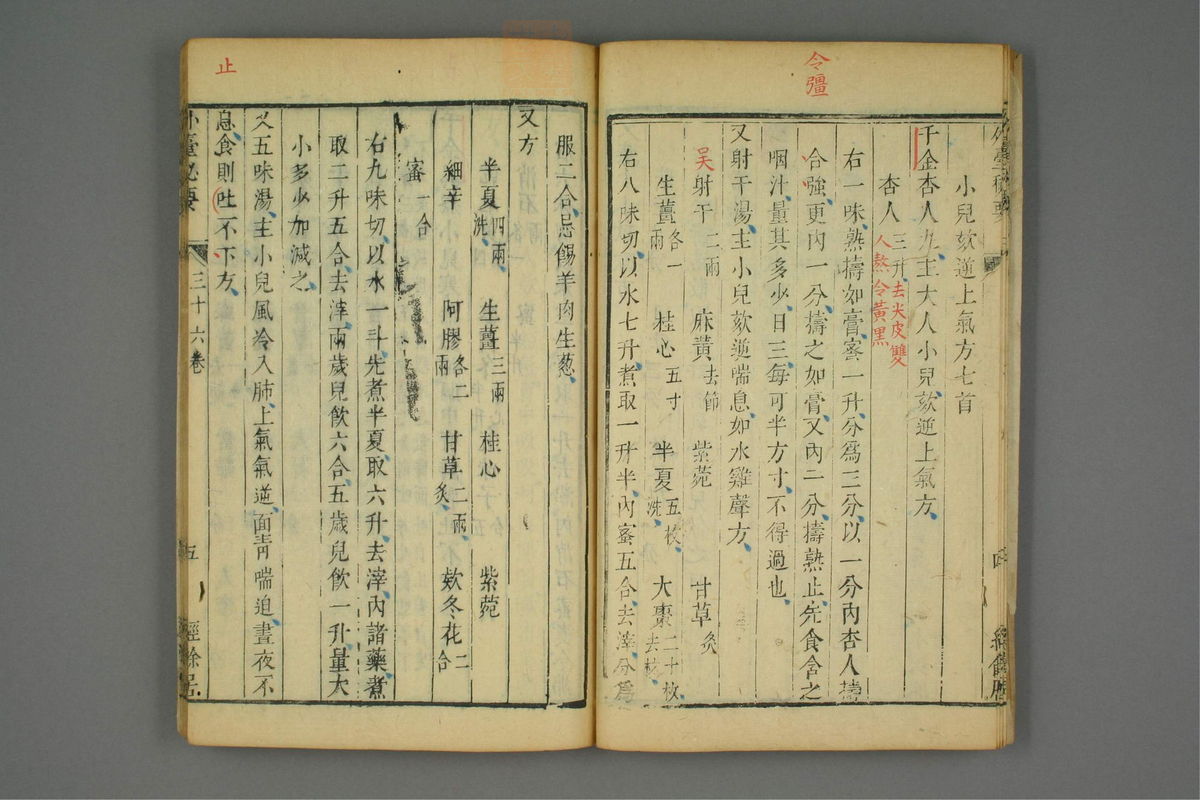 令彊
小兒欬逆上氣方七首
千金杏人丸主大人小兒欬逆上氣方
杏人三升去尖皮雙
人熬令黃黑
右一味熟擣如膏蜜一升分爲三分以一分內杏人擣
合強更內一分擣之如膏又內一分擣熟止先食含之
咽汁量其多少日三每可半方寸不得過也
又射干湯主小兒欬逆喘息如水雞聲方
吴射干二兩 麻黃去節 紫菀 甘草炙
生薑各一兩 桂心五寸 半夏五枚洗 大棗二十枚去核
右八味切以水七升煮取一升半內蜜五合去滓分爲
四 經餘居
止
服二合忌餳羊肉生葱
又方
半夏四兩洗 生薑三兩 桂心 紫菀
細辛 阿膠各二兩 甘草二兩炙 款冬花二合
蜜一合
右九味切以水一斗先煮半夏取六升去滓內諸藥煮
取二升五合去滓兩歲兒飲六合五歲兒飲一升量大
小多少加減之
又五味湯主小兒風冷入肺上氣氣逆面青喘迫晝夜不
息食則吐不下方
外臺秘要 三十六卷 五 經餘居